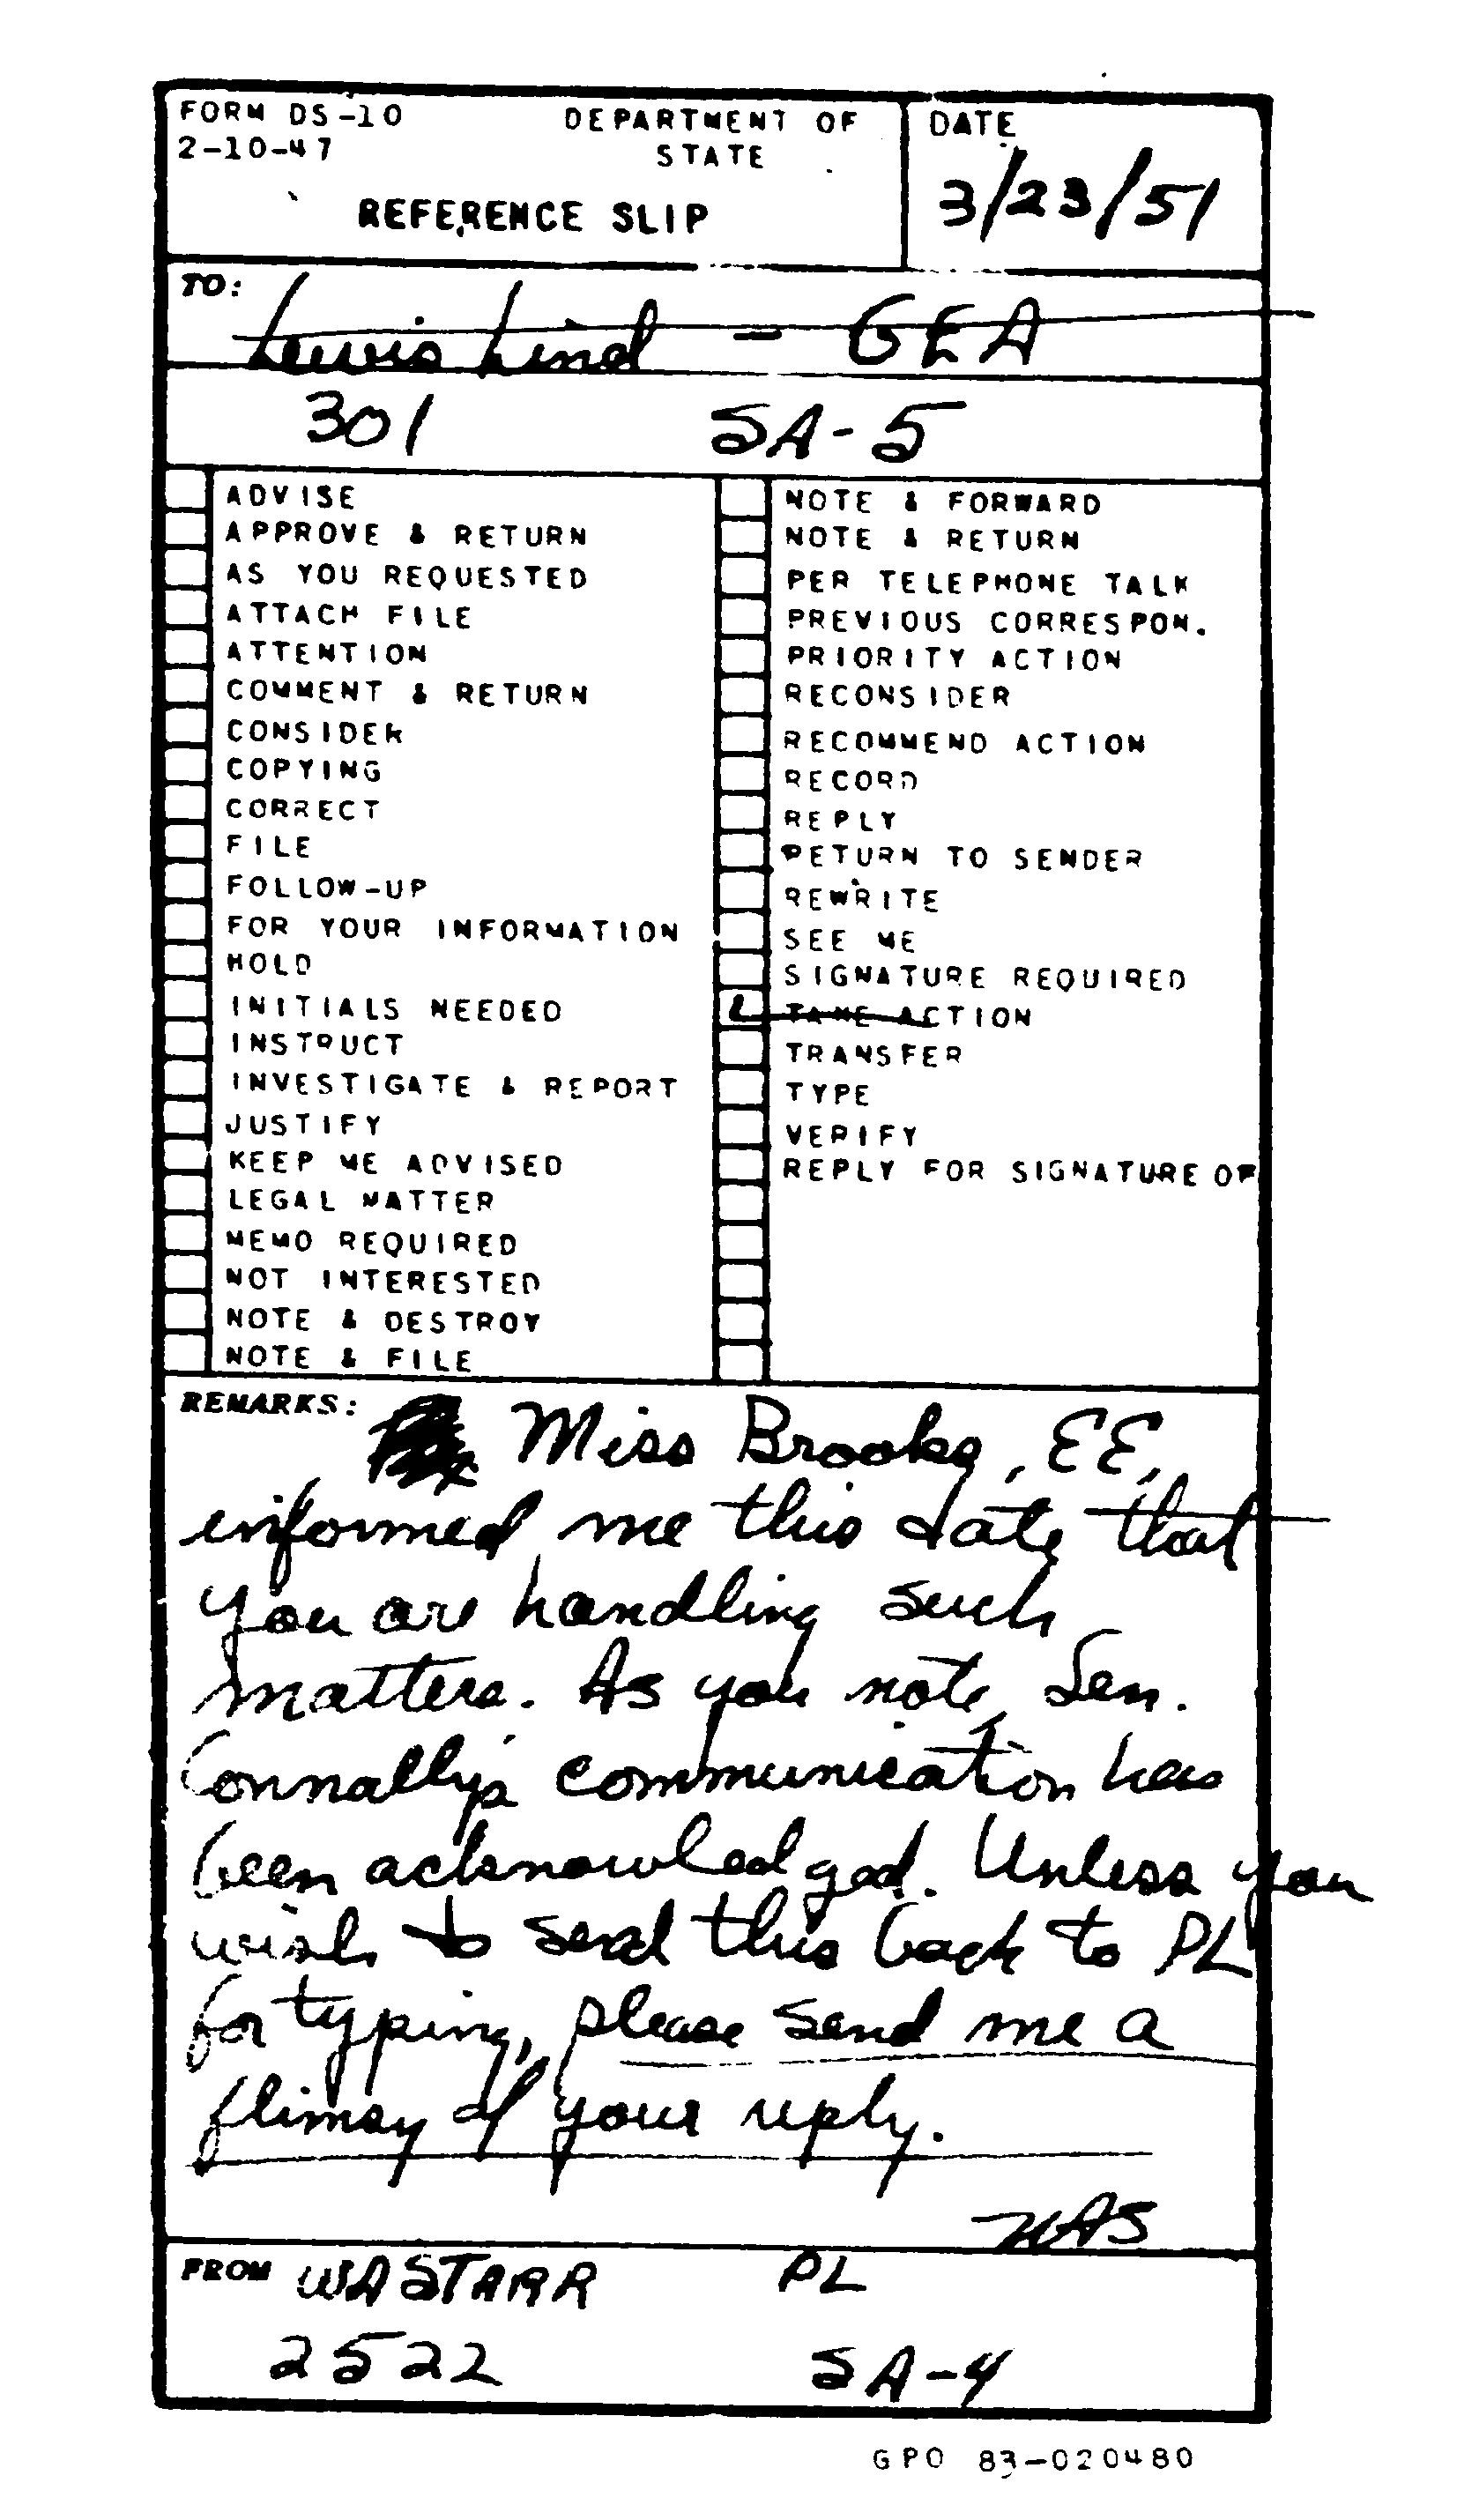 FORM DS-10
2-10-47
DEPARTMENT OF
STATE
REFERENCE SLIP
DATE
3/23/51
TO:
Lewis Lind - GEA
301 SA-5
ADVISE
APPROVE & RETURN
AS YOU REQUESTED
ATTACH FILE
ATTENTION
COMMENT & RETURN
CONSIDER
COPYING
CORRECT
FILE
FOLLOW-UP
FOR YOUR INFORMATION
HOLD
INITIALS NEEDED
INSTRUCT
INVESTIGATE & REPORT
JUSTIFY
KEEP ME ADVISED
LEGAL MATTER
MEMO REQUIRED
NOT INTERESTED
NOTE & DESTROY
NOTE & FILE
NOTE & FORWARD
NOTE & RETURN
PER TELEPHONE TALK
PREVIOUS CORRESPON.
PRIORITY ACTION
RECONSIDER
RECOMMEND ACTION
RECORD
REPLY
RETURN TO SENDER
REWRITE
SEE ME
SIGNATURE REQUIRED
TAKE ACTION
TRANSFER
TYPE
VERIFY
REPLY FOR SIGNATURE OF
REMARKS:
Miss Brooks, EE,
informed me this date that
you are handling such
matters. As you note, Sen.
Connally's communication has
been acknowledged. Unless you
wish to send this back to PL
for typing, please send me a
flimsy of your reply.
WAS
FROM WASTARR PL
2522 SA-4
GPO 83-020480